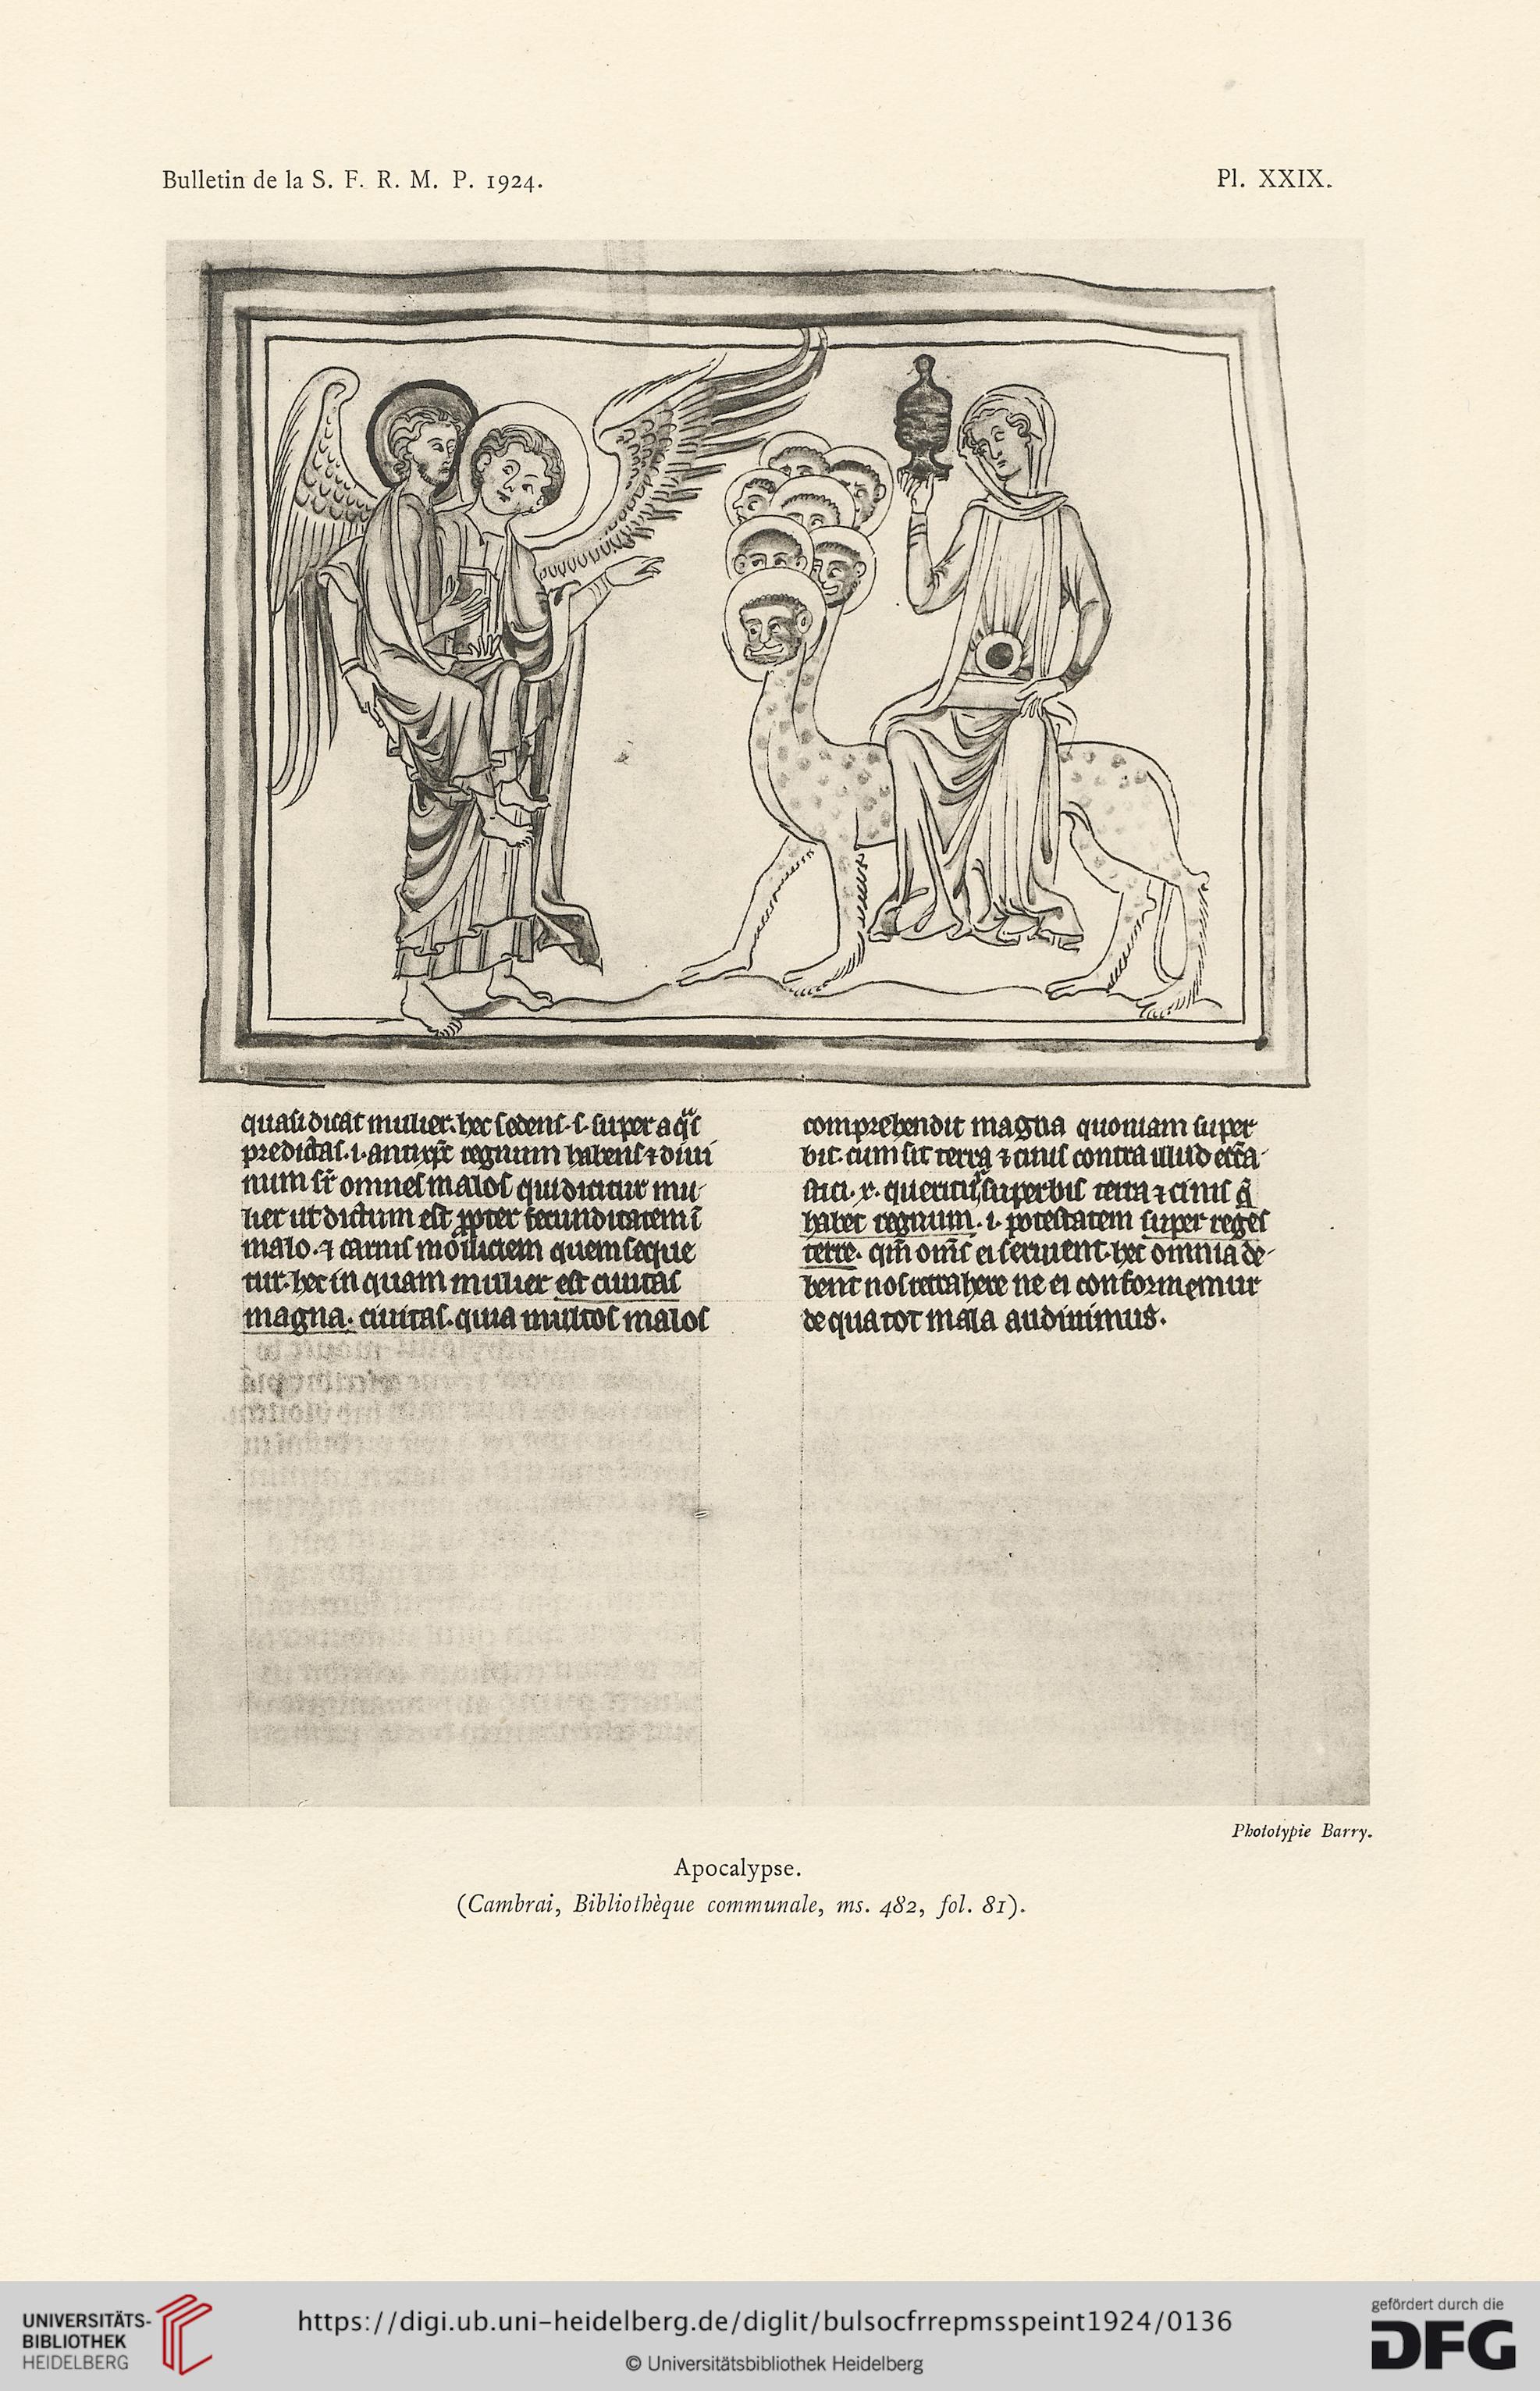 Bulletin de la S. F. R. M. P. 1924.
Pl. XXIX.
quasi dicat mulier. hec sedens .s. super aq̄s
predictas .i. antixp̄c regnum habens ⁊ diui
num sr̄ omnes malos qui dicitur mu-
lier ut dictum est ꝓpter fecunditatem ī
malo. ⁊ carnis molliciem quem seque
tur. hec in quam mulier est ciuitas
magna. ciuitas. quia multos malos
comprehendit magna quoniam super
bit. cum sit terra ⁊ cinis contra illud
.x. superbis terra ⁊ cinis q̄
habet regnum .i. potestatem super reges
terre. qm̄ om̄s ei seruient. hec omnia de-
bent nos retrahere ne ei conformemur
de qua tot mala audiuimus.
Phototypie Barry.
Apocalypse.
(Cambrai, Bibliothèque communale, ms. 482, fol. 81).
UNIVERSITÄTS-
BIBLIOTHEK
HEIDELBERG
https://digi.ub.uni-heidelberg.de/diglit/bulsocfrrepmsspeint1924/0136
© Universitätsbibliothek Heidelberg
gefördert durch die
DFG